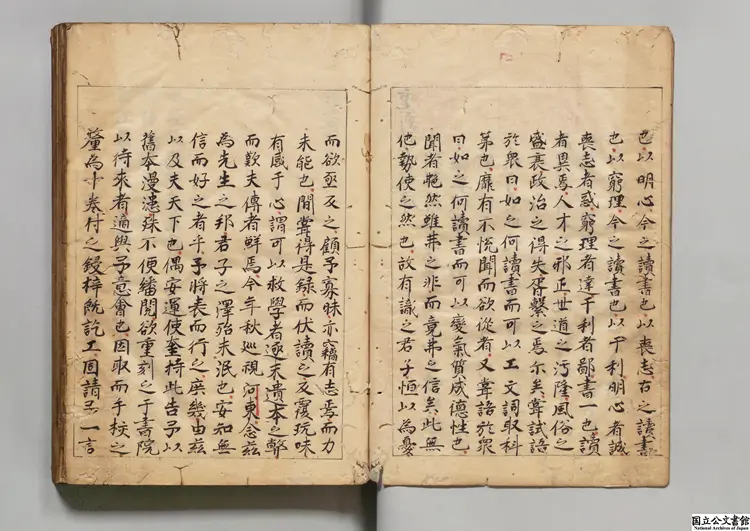 也以明心今之讀書也以喪志古之讀書
也以窮理今之讀書也以干利明心者誠
喪志者惑窮理者達干利者鄙書一也讀
者異焉人才之邪正世道之汚隆風俗之
盛衰政治之得失胥繫之焉尔矣甞試語
於衆曰如之何讀書而可以工文詞取科
第也靡有不悦聞而欲從者又甞語於衆
曰如之何讀書而可以變氣質成德性也
聞者䒐然雖弗之非而竟弗之信矣此無
他勢使之然也故有識之君子恒以為憂
而欲亟反之顧予寡昧亦竊有志焉而力
未能也間甞得是録而伏讀之反覆玩味
有感于心謂可以救學者逐末遺本之弊
而歎夫傳者鮮焉今年秋巡視河東念茲
為先生之邦君子之澤殆未泯也安知無
信而好之者乎予將表而行之庶幾由茲
以及夫天下也偶安運使奎持此告予以
舊本漫漶殊不便繙閲欲重刻之于書院
以待來者適與予意會也因取而手校之
釐為十卷付之鋟梓既訖工因請予一言
国立公文書館
National Archives of Japan